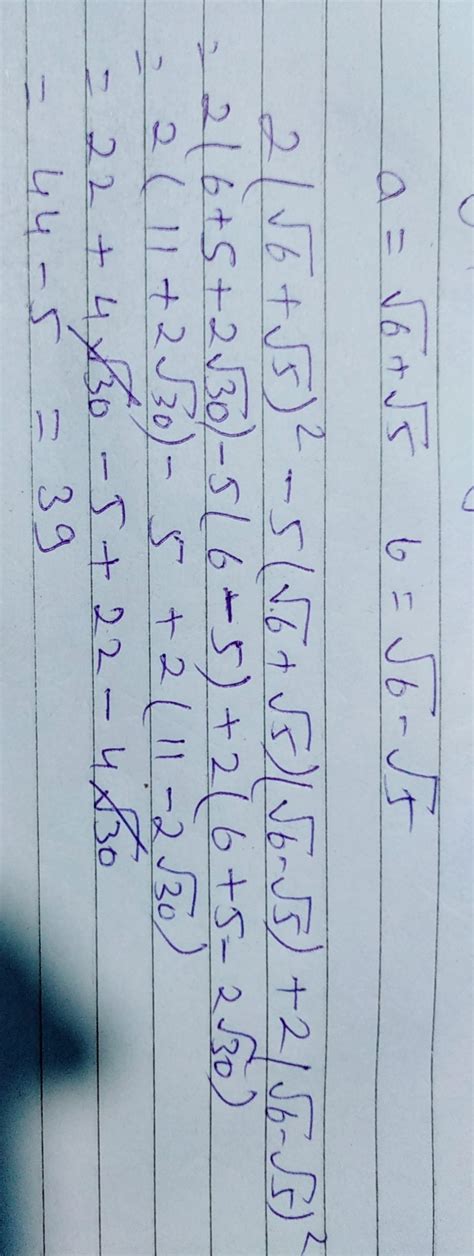 a = √6+√5 b = √6-√5
2(√6 + √5)² - 5(√6 + √5)(√6-√5) + 2(√6-√5)²
= 2(6+5+2√30) - 5(6-5) + 2(6+5-2√30)
= 2(11 + 2√30) - 5 + 2(11 - 2√30)
= 22 + 4√30 - 5 + 22 - 4√30
= 44 - 5 = 39